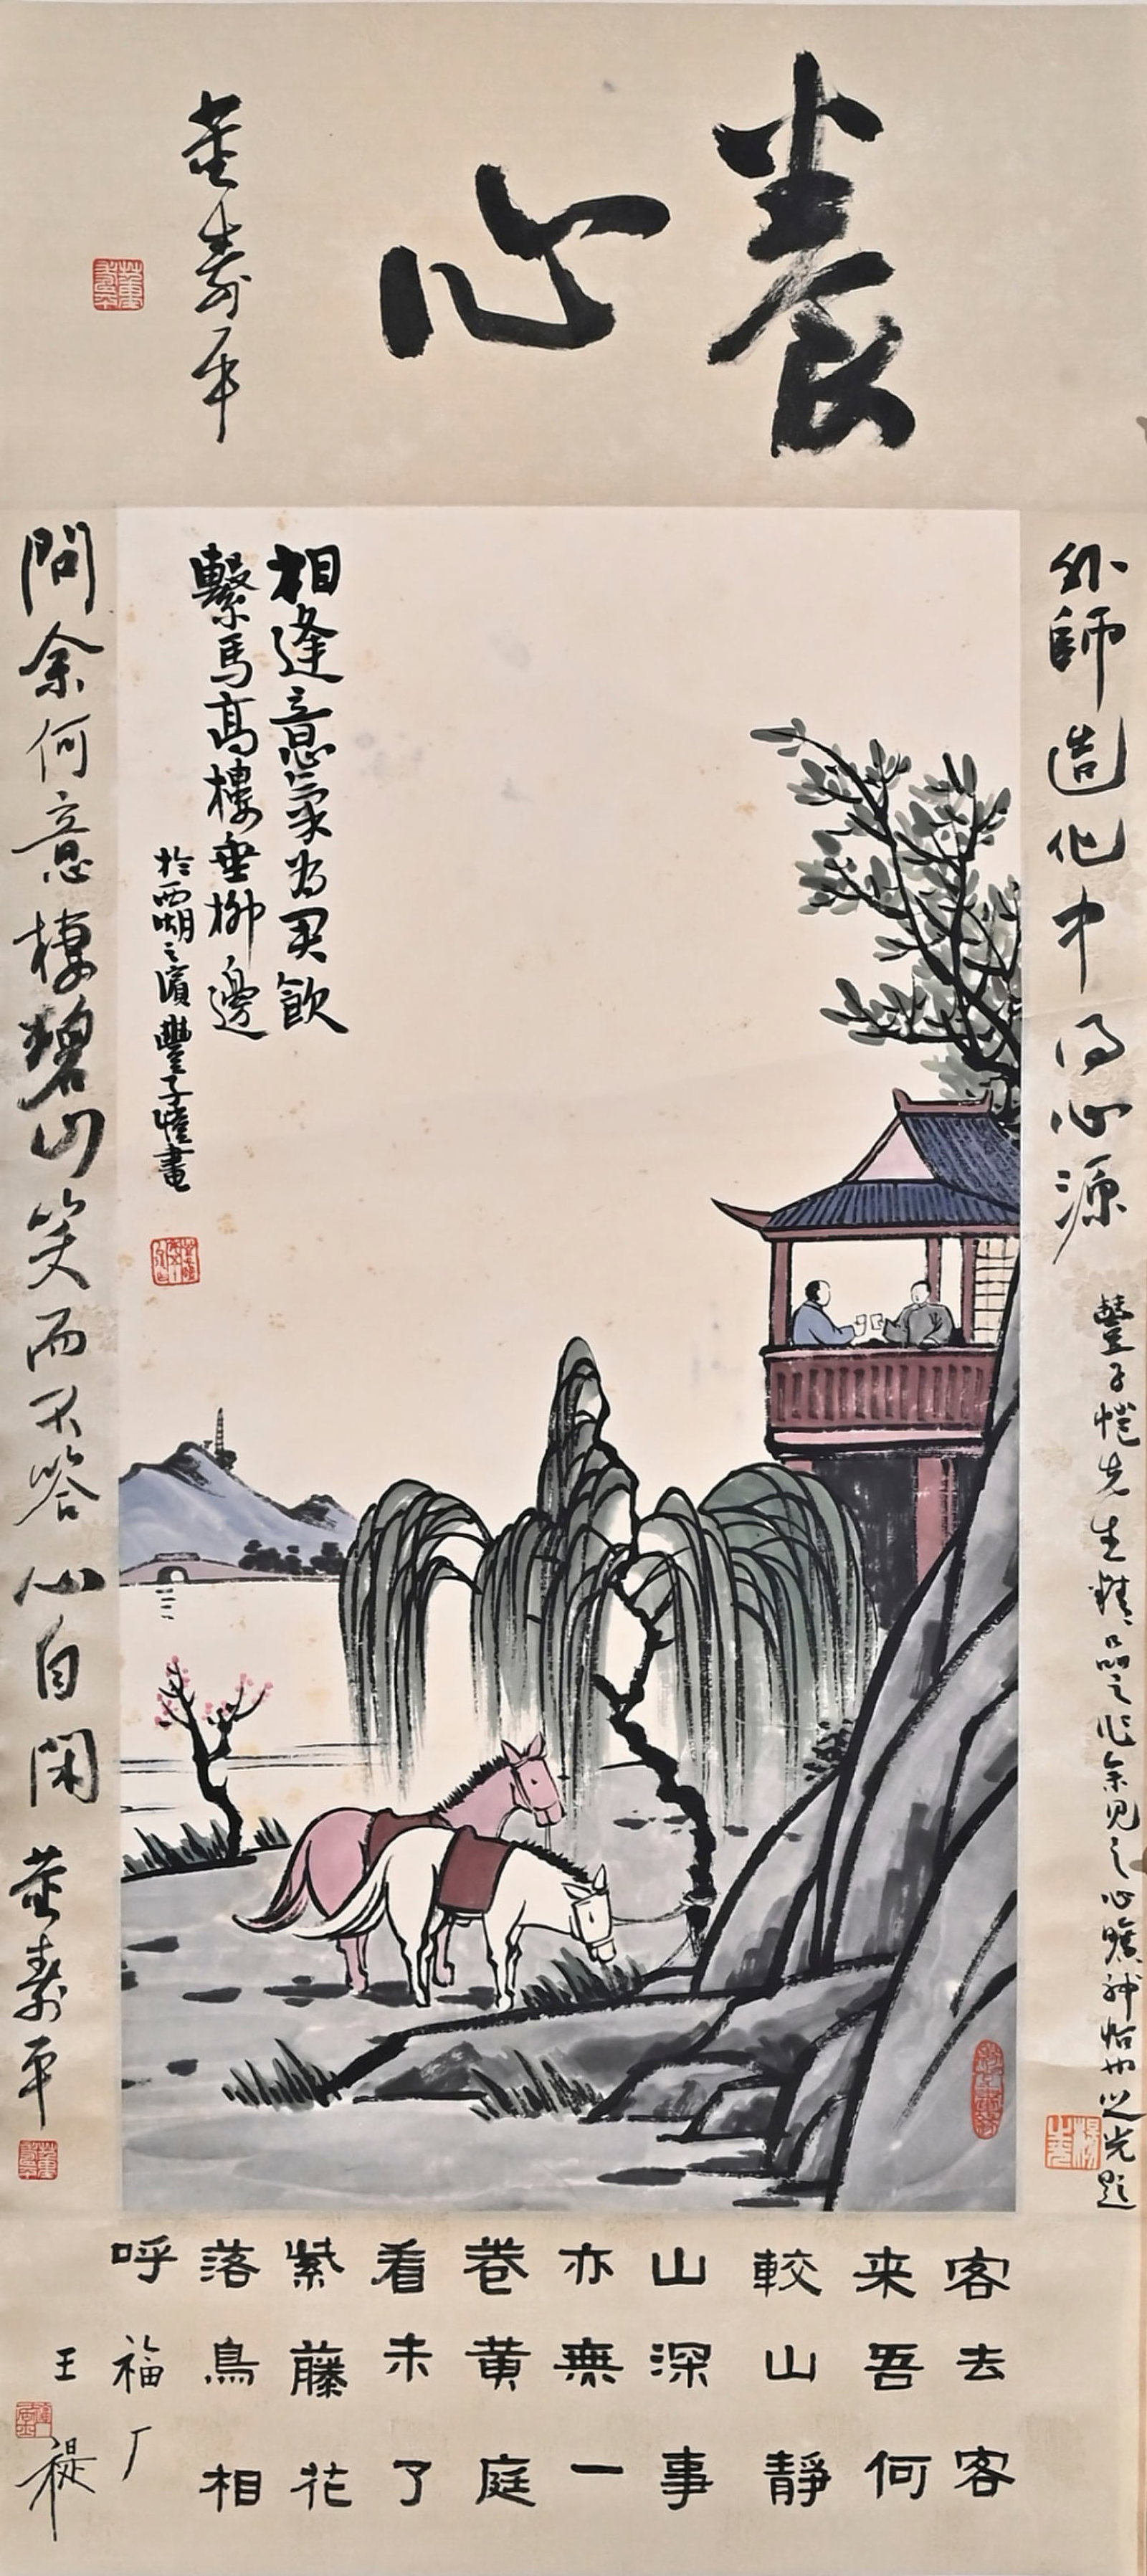 養心
董壽平
外師造化中得心源
豐子愷先生精品之作余見之心曠神怡也之光題
相逢意氣為君飲
繫馬高樓垂柳邊
於西湖之濱豐子愷畫
問余何意棲碧山笑而不答心自閑
董壽平
客去客
来吾何
較山靜
山深事
亦無一
卷黄庭
看未了
紫藤花
落鳥相
呼
福厂
王禔